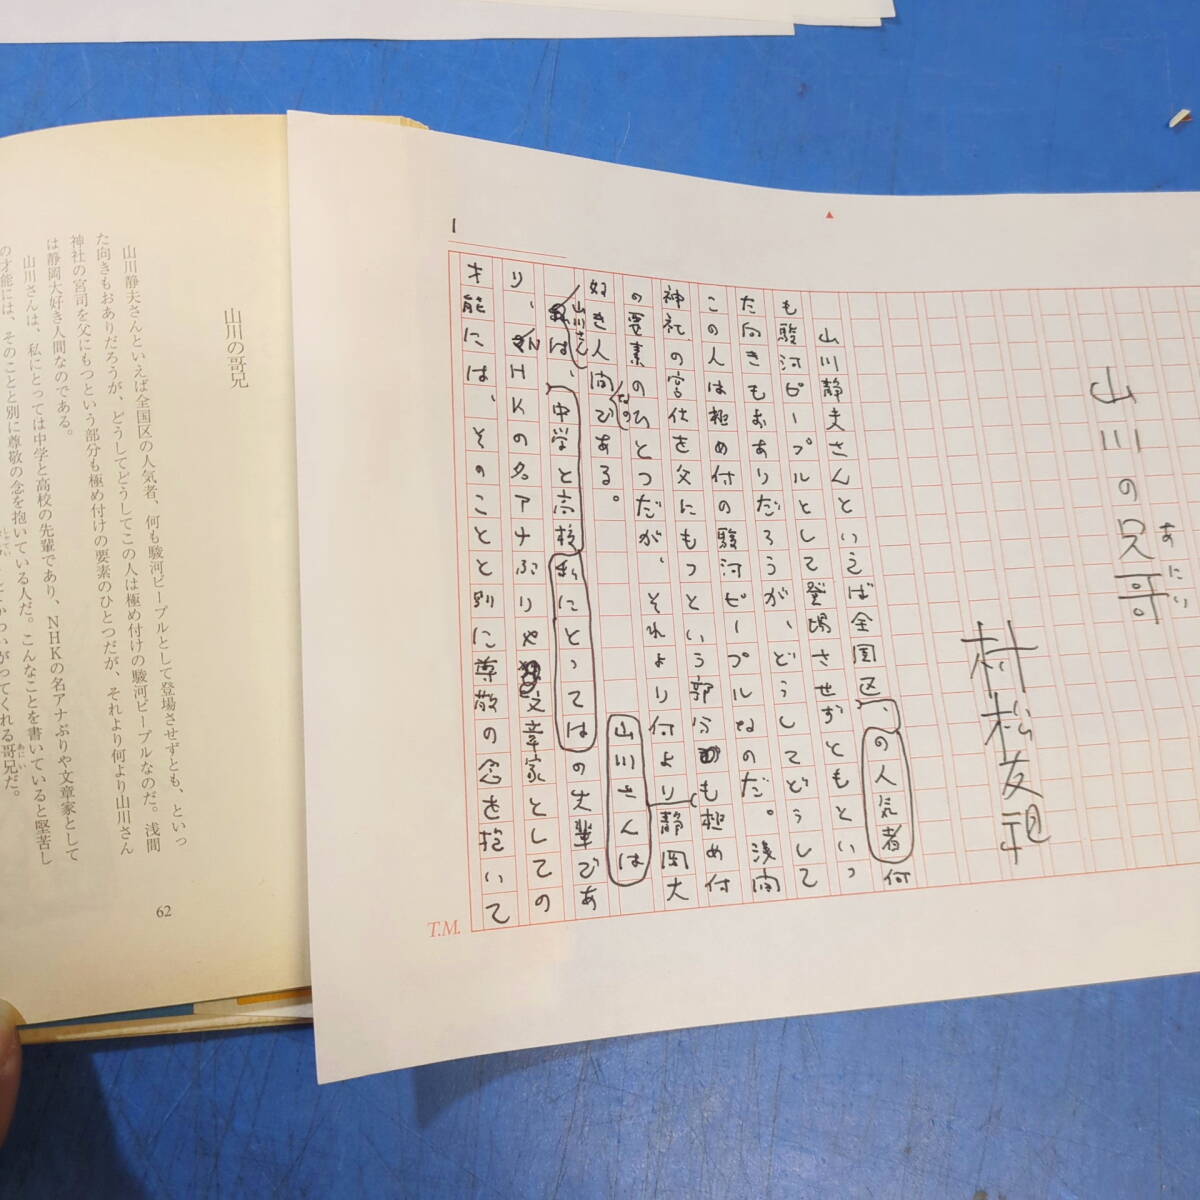 山川の兄哥
あにい
村松友視
山川静夫さんといえば全国区、の人気者何
も駿河ピープルとして登場させずともといっ
た向きもおありだろうが、どうしてどうして
この人は極め付の駿河ピープルなのだ。浅間
神社の宮仕を父にもつという部分も極め付
の要素のひとつだが、それより何より静岡大
山川さんは
好き人間である。
なの
山川さん
は、中学と高校私にとってはの先輩であ
り、NHKの名アナぶりや文章家としての
才能には、そのことと別に尊敬の念を抱いて
1
T.M.
山川の哥兄
山川静夫さんといえば全国区の人気者、何も駿河ピープルとして登場させずとも、といっ
た向きもおありだろうが、どうしてどうしてこの人は極め付けの駿河ピープルなのだ。浅間
神社の宮司を父にもつという部分も極め付けの要素のひとつだが、それより何より山川さん
は静岡大好き人間なのである。
山川さんは、私にとっては中学と高校の先輩であり、NHKの名アナぶりや文章家として
の才能には、そのことと別に尊敬の念を抱いている人だ。こんなことを書いていると堅苦し
かわいがってくれる哥兄だ。
あにい
62